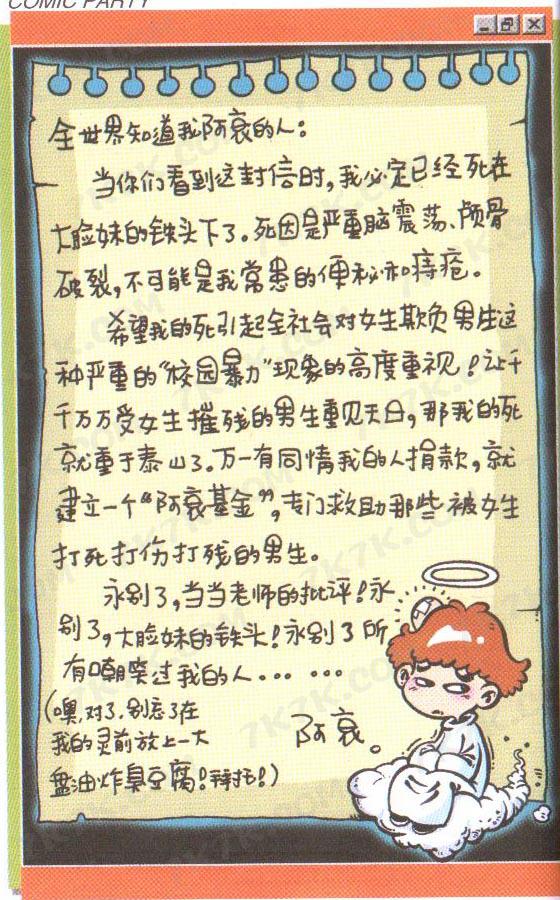 COMIC PARTY
全世界知道我阿衰的人：
当你们看到这封信时，我必定已经死在
大脸妹的铁头下了。死因是严重脑震荡、颅骨
破裂，不可能是我常患的便秘和痔疮。
希望我的死引起全社会对女生欺负男生这
种严重的“校园暴力”现象的高度重视！让千
千万万受女生摧残的男生重见天日，那我的死
就重于泰山了。万一有同情我的人捐款，就
建立一个“阿衰基金”，专门救助那些被女生
打死打伤打残的男生。
永别了，当当老师的批评！永
别了，大脸妹的铁头！永别了所
有嘲笑过我的人……
(噢，对了，别忘了在
我的灵前放上一大
盘油炸臭豆腐！拜托！)
阿衰。
7K7K.COM